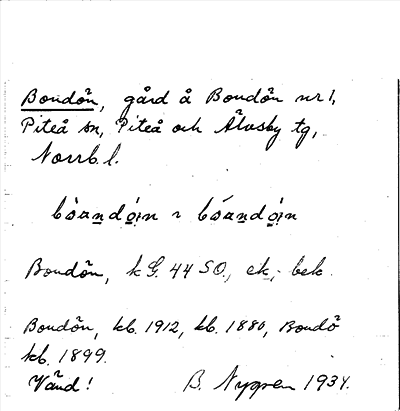 Bondön, gård å Bondön nr 1,
Piteå sn, Piteå och Älvsby tg,
Norrb. l.
bòandói̯n ~ bóandói̯n
Bondön, kG. 44 SO., ek., bek.
Bondön, kb. 1912, kb. 1880, Bondö
kb. 1899.
Vänd!
B. Nygren 1934.